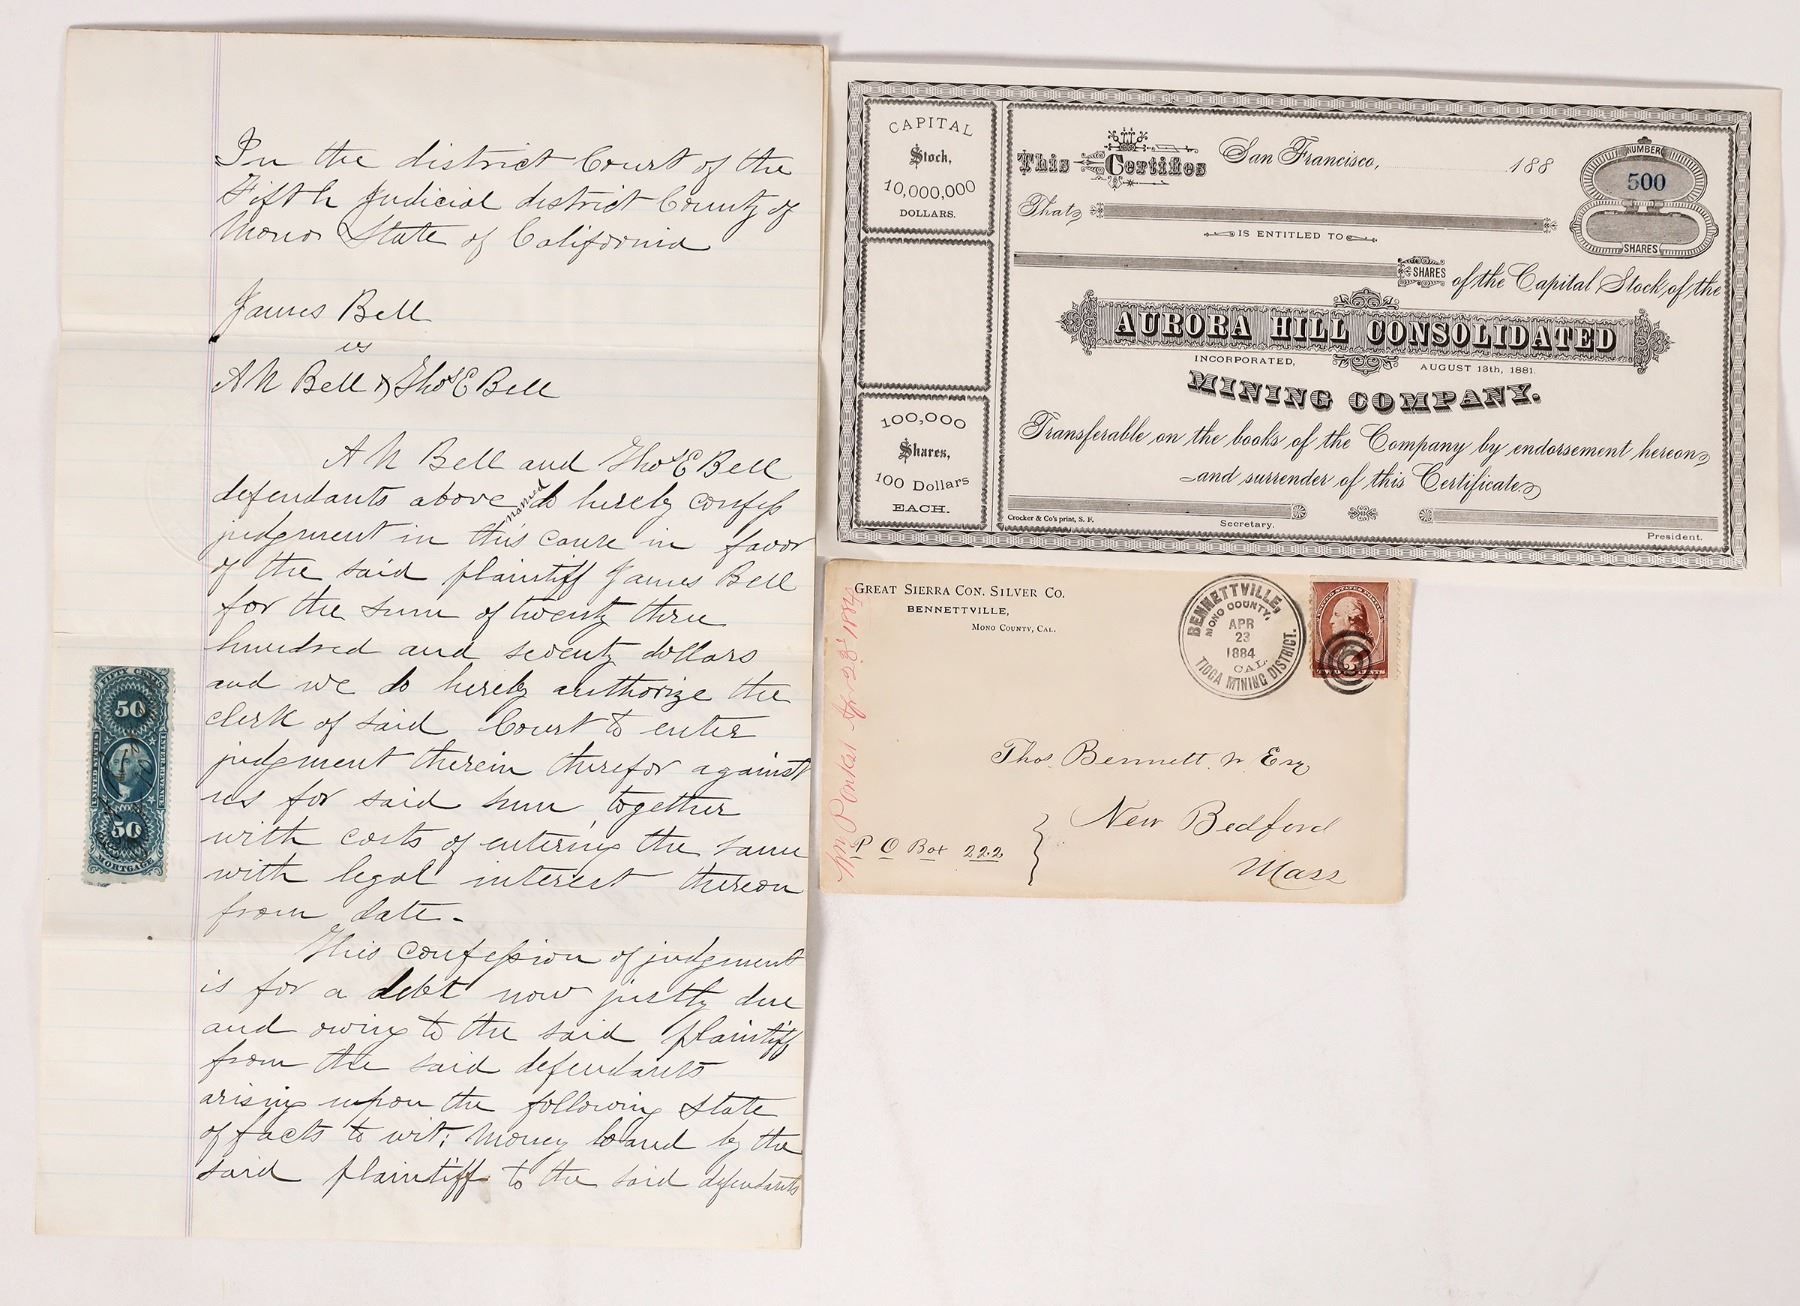 In the district Court of the
Fifth Judicial district County of
Mono State of California
James Bell
vs
A N Bell & Thos E Bell
A N Bell and Thos E Bell
defendants above named do hereby confess
judgment in this cause in favor
of the said plaintiff James Bell
for the sum of twenty three
hundred and seventy dollars
and we do hereby authorize the
clerk of said Court to enter
judgment therein therefor against
us for said sum together
with costs of entering the same
with legal interest thereon
from date -
This confession of judgment
is for a debt now justly due
and owing to the said plaintiff
from the said defendants
arising upon the following state
of facts to wit; Money loand by the
said plaintiff to the said defendants
FIFTY CENTS
50
UNITED STATES
INTER. REVENUE
50
MORTGAGE
CAPITAL
Stock,
10,000,000
DOLLARS.
100,000
Shares,
100 Dollars
EACH.
This Certifies San Francisco, 188
NUMBER
500
SHARES
That
IS ENTITLED TO
SHARES of the Capital Stock of the
AURORA HILL CONSOLIDATED
INCORPORATED, AUGUST 13th, 1881.
MINING COMPANY.
Transferable on the books of the Company by endorsement hereon
and surrender of this Certificate
Crocker & Co's print, S. F.
Secretary.
President.
GREAT SIERRA CON. SILVER CO.
BENNETTVILLE,
MONO COUNTY, CAL.
BENNETTVILLE,
MONO COUNTY,
APR
23
1884
CAL.
TIOGA MINING DISTRICT.
TWO CENTS
Thos. Bennett Jr Esq
New Bedford
Mass
P O Box 222